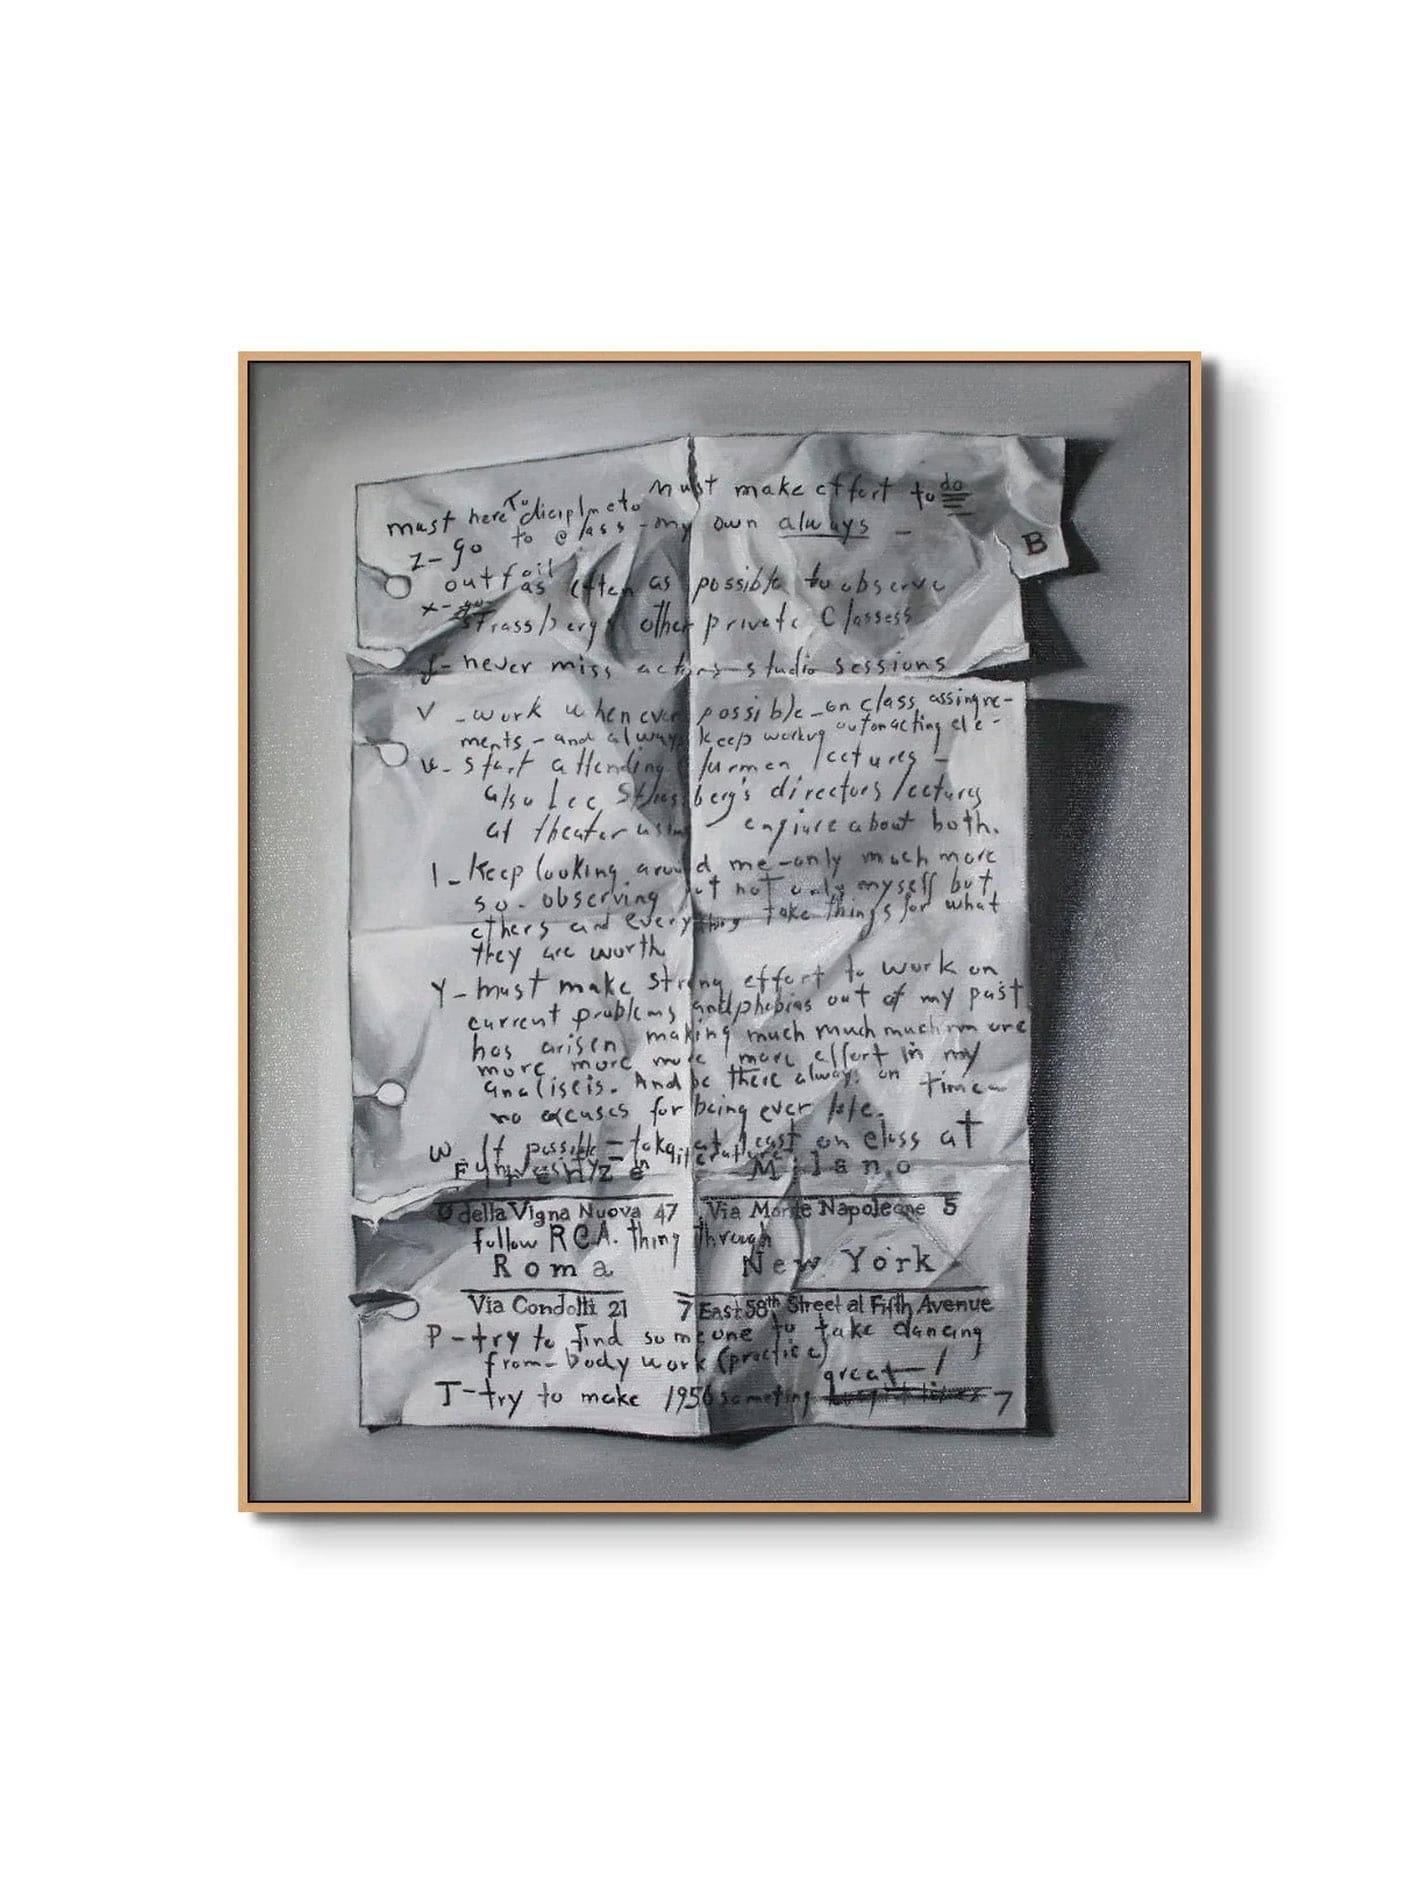 must make effort to do
must here To diciplineto
z-go to class-my own always -
outfail
x-
as often as possible to observe
Strassbergs other private Classess
y- never miss actors studio sessions
V -work whenever possible-on class assingne-
ments - and always keep workng outonacting ele-
u- start attending Clurmen lectures -
also Lee Strassberg's directors lectures
at theater using - enqiure about both.
l- Keep looking around me-only much more
so- observing but not only myself but
others and everything take things for what
they are worth
Y- must make strong effort to work on
current problems and phobias out of my past
has arisen making much much much more
more more more more effort in my
analiseis. And be there always on time-
no excuses for being ever late.
W If possible - take at least on class at
university in literature
Firenze Milano
della Vigna Nuova 47 Via Monte Napoleone 5
follow RCA. thing through
Roma New York
Via Condotti 21 7 East 58th Street al Fifth Avenue
P-try to find someone to take dancing
from-body work (practice)
great-!
T-try to make 1956 someting 7
B